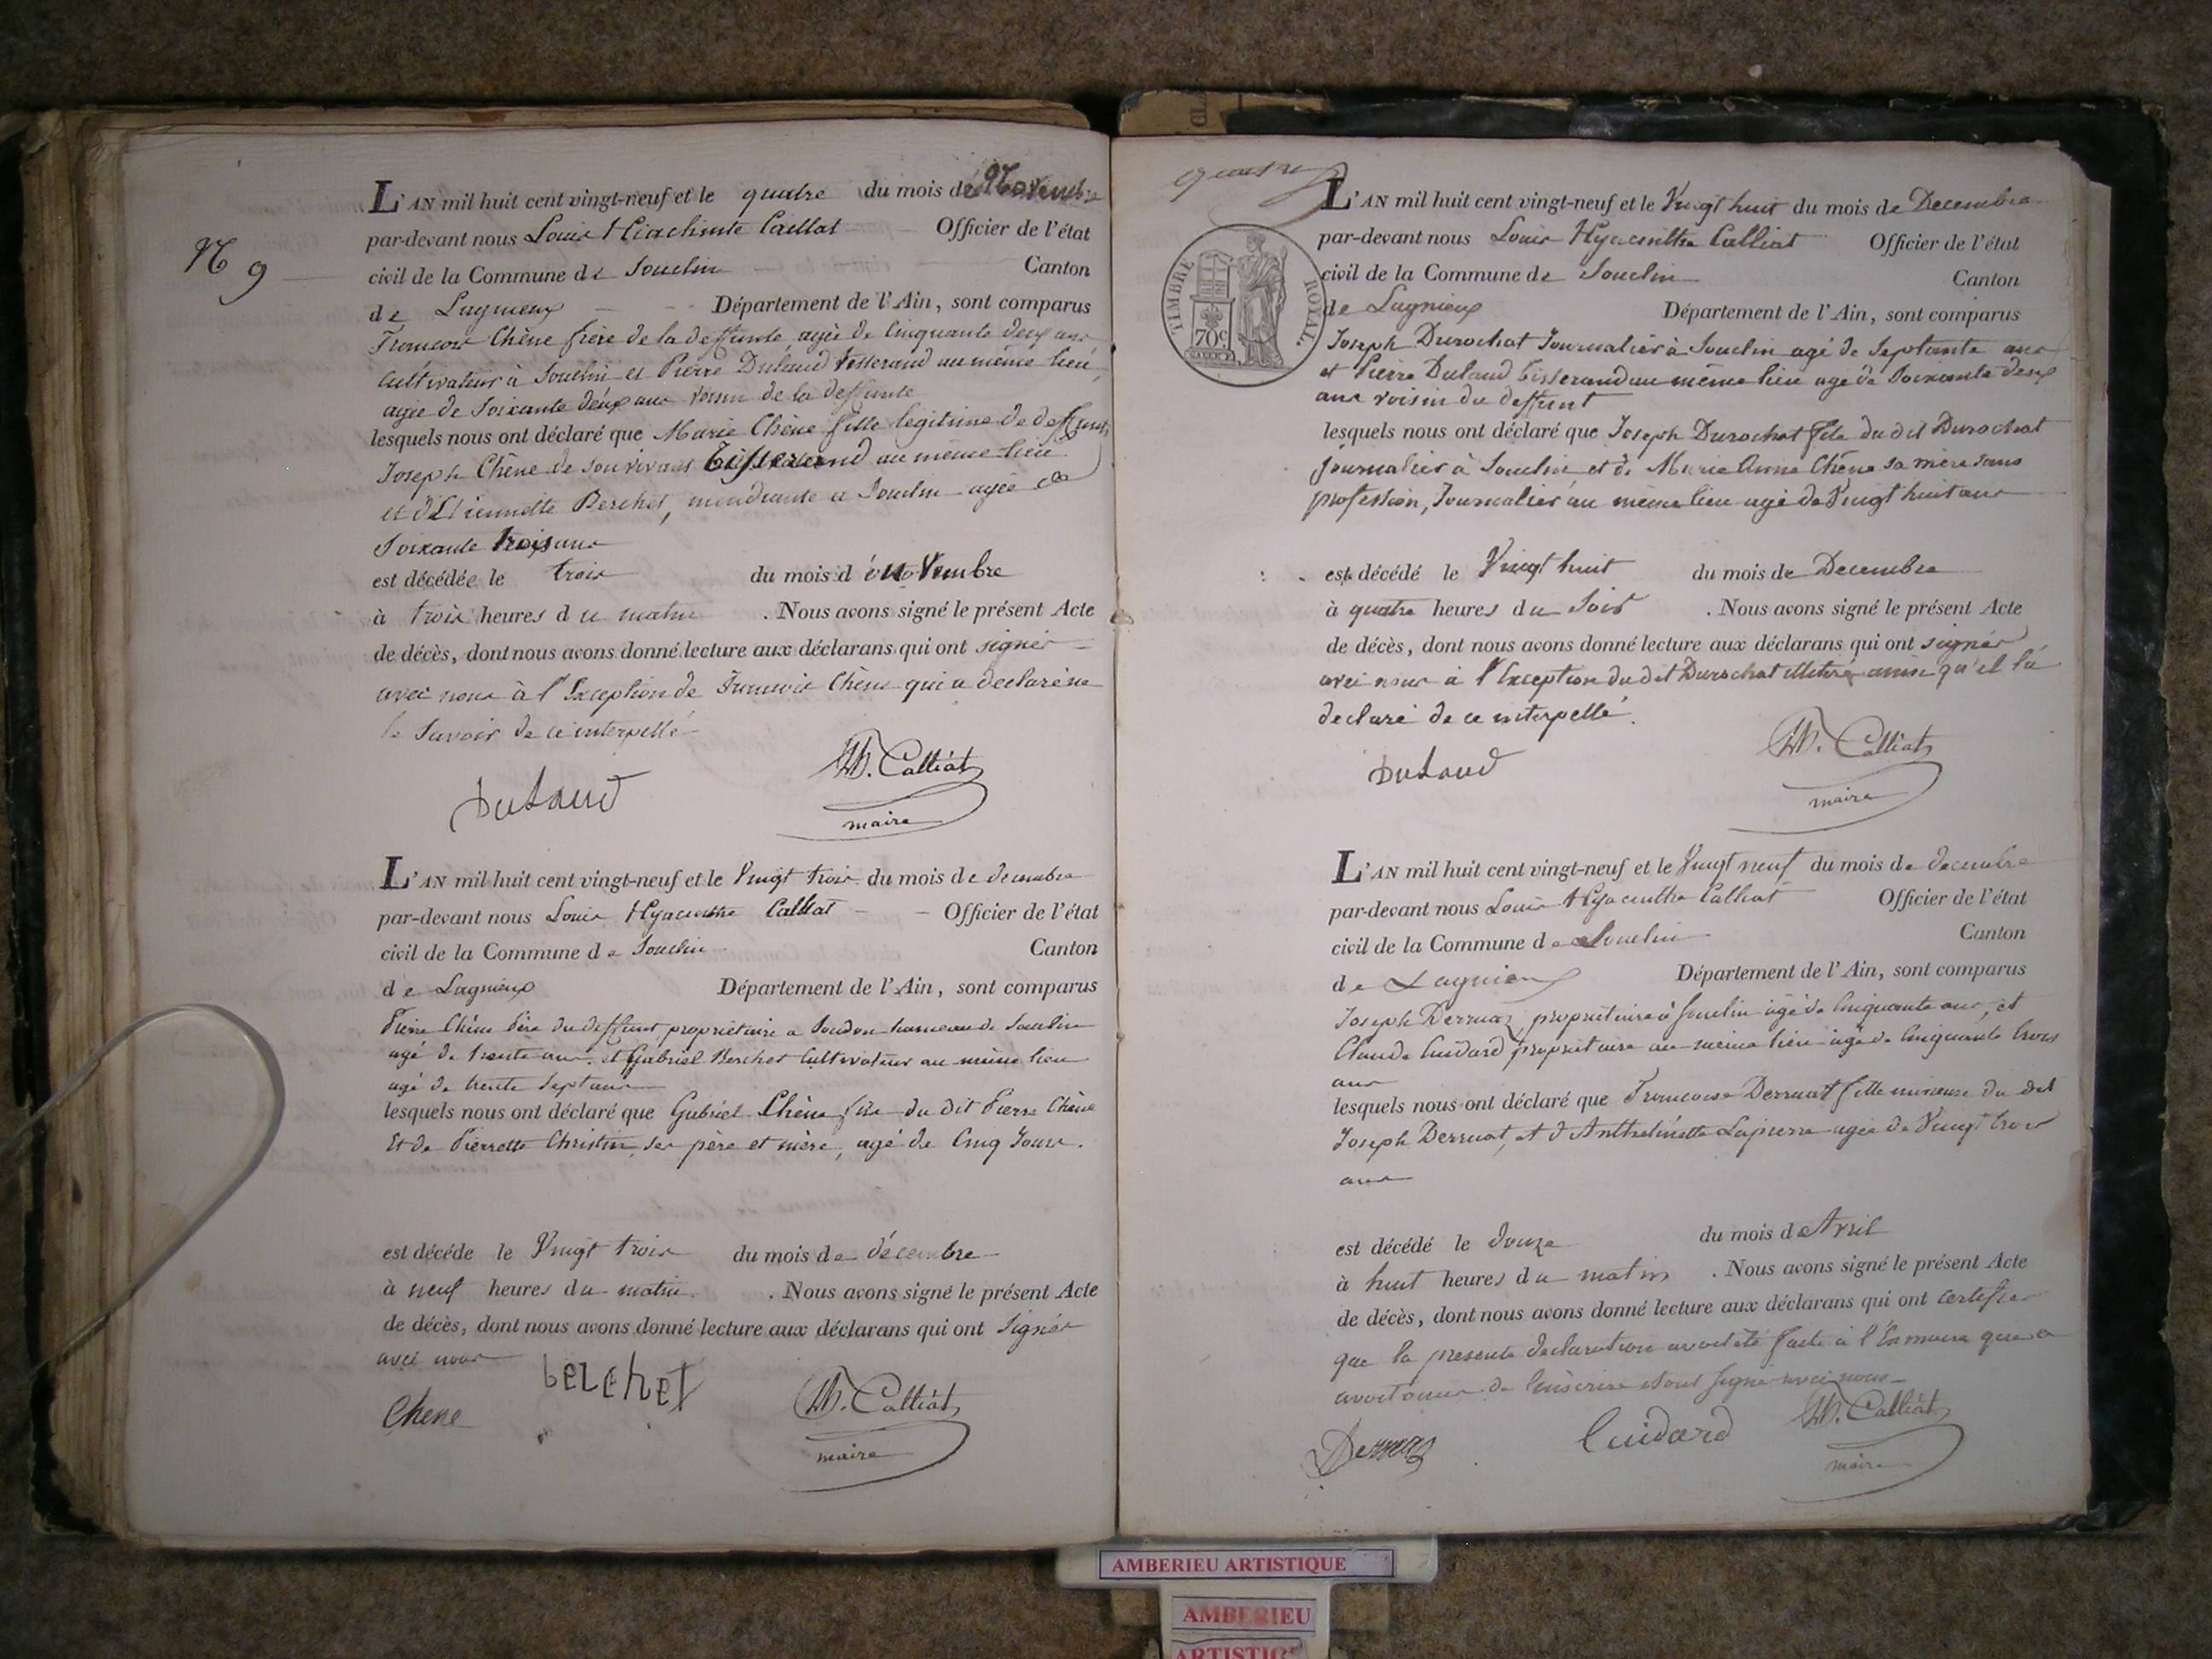 N 9
L'AN mil huit cent vingt-neuf et le quatre du mois de Novembre
par-devant nous Louis Hiachinte Calliat Officier de l'état
civil de la Commune de Souclin Canton
de Lagnieux Département de l'Ain, sont comparus
Francois Chêne frère de la deffunte, agée de Cinquante deux ans
cultivateur à Souclin et Pierre Dulaud tisserand au même lieu,
agée de Soixante deux ans voisin de la deffunte
lesquels nous ont déclaré que Marie Chêne fille legitime de deffunt
Joseph Chêne de son vivant Tisserand au même lieu
et d'Etiennette Berchet, mendiante a Souclin agée de
Soixante trois ans
est décédée le trois du mois de novembre
à trois heures du matin . Nous avons signé le présent Acte
de décès, dont nous avons donné lecture aux déclarans qui ont signés
avec nous à l'Exception de Francois Chêne qui a declaré ne
le Savoir de ce interpellé
Dulaud
LH. Calliat
maire
L'AN mil huit cent vingt-neuf et le Vingt trois du mois de decembre
par-devant nous Louis Hyacinthe Calliat Officier de l'état
civil de la Commune de Souclin Canton
de Lagnieux Département de l'Ain, sont comparus
Pierre Chêne Père du deffunt, propriétaire a Soudon hameau de Souclin
agé de trente ans et Gabriel Berchet Cultivateur au même lieu
agé de trente Sept ans
lesquels nous ont déclaré que Gabriel Chêne fils du dit Pierre Chêne
Et de Pierrette Christin, ses père et mère, agé de Cinq Jours.
est décéde le Vingt trois du mois de décembre
à neuf heures du matin . Nous avons signé le présent Acte
de décès, dont nous avons donné lecture aux déclarans qui ont Signés
avec nous
Chene
berchet
LH. Calliat
maire
quatre
TIMBRE ROYAL
70c
L'AN mil huit cent vingt-neuf et le Vingt huit du mois de Decembre
par-devant nous Louis Hyacinthe Calliat Officier de l'état
civil de la Commune de Souclin Canton
de Lagnieux Département de l'Ain, sont comparus
Joseph Durochat Journalier à Souclin agé de Septante ans
et Pierre Dulaud tisserand au même lieu agé de Soixante deux
ans voisin du deffunt
lesquels nous ont déclaré que Joseph Durochat fils du dit Durochat
journalier à Souclin et de Marie Anne Chêne sa mère sans
profession, Journalier au même lieu agé de Vingt huit ans
est décédé le Vingt huit du mois de Decembre
à quatre heures du Soir . Nous avons signé le présent Acte
de décès, dont nous avons donné lecture aux déclarans qui ont signés
avec nous à l'Exception du dit Durochat illitéré ainsi qu'il l'a
declaré de ce interpellé.
Dulaud
LH. Calliat
maire
L'AN mil huit cent vingt-neuf et le Vingt neuf du mois de decembre
par-devant nous Louis Hyacinthe Calliat Officier de l'état
civil de la Commune de Souclin Canton
de Lagnieux Département de l'Ain, sont comparus
Joseph Derruaz, propriétaire à Souclin agé de Cinquante ans, et
Claude Cuidard propriétaire au même lieu agé de Cinquante trois
ans
lesquels nous ont déclaré que Francoise Derruat fille mineure du dit
Joseph Derruat, et d'Anthelmette Lapierre agée de Vingt trois
ans
est décédé le douze du mois de Avril
à huit heures du matin . Nous avons signé le présent Acte
de décès, dont nous avons donné lecture aux déclarans qui ont certifier
que la presente déclaration avoit été faite à l'Ex maire qui
avoit omis de l'inscrire et ont signé avec nous
Derruaz
Cuidard
LH. Calliat
maire
AMBERIEU ARTISTIQUE
AMBERIEU
ARTISTIQUE